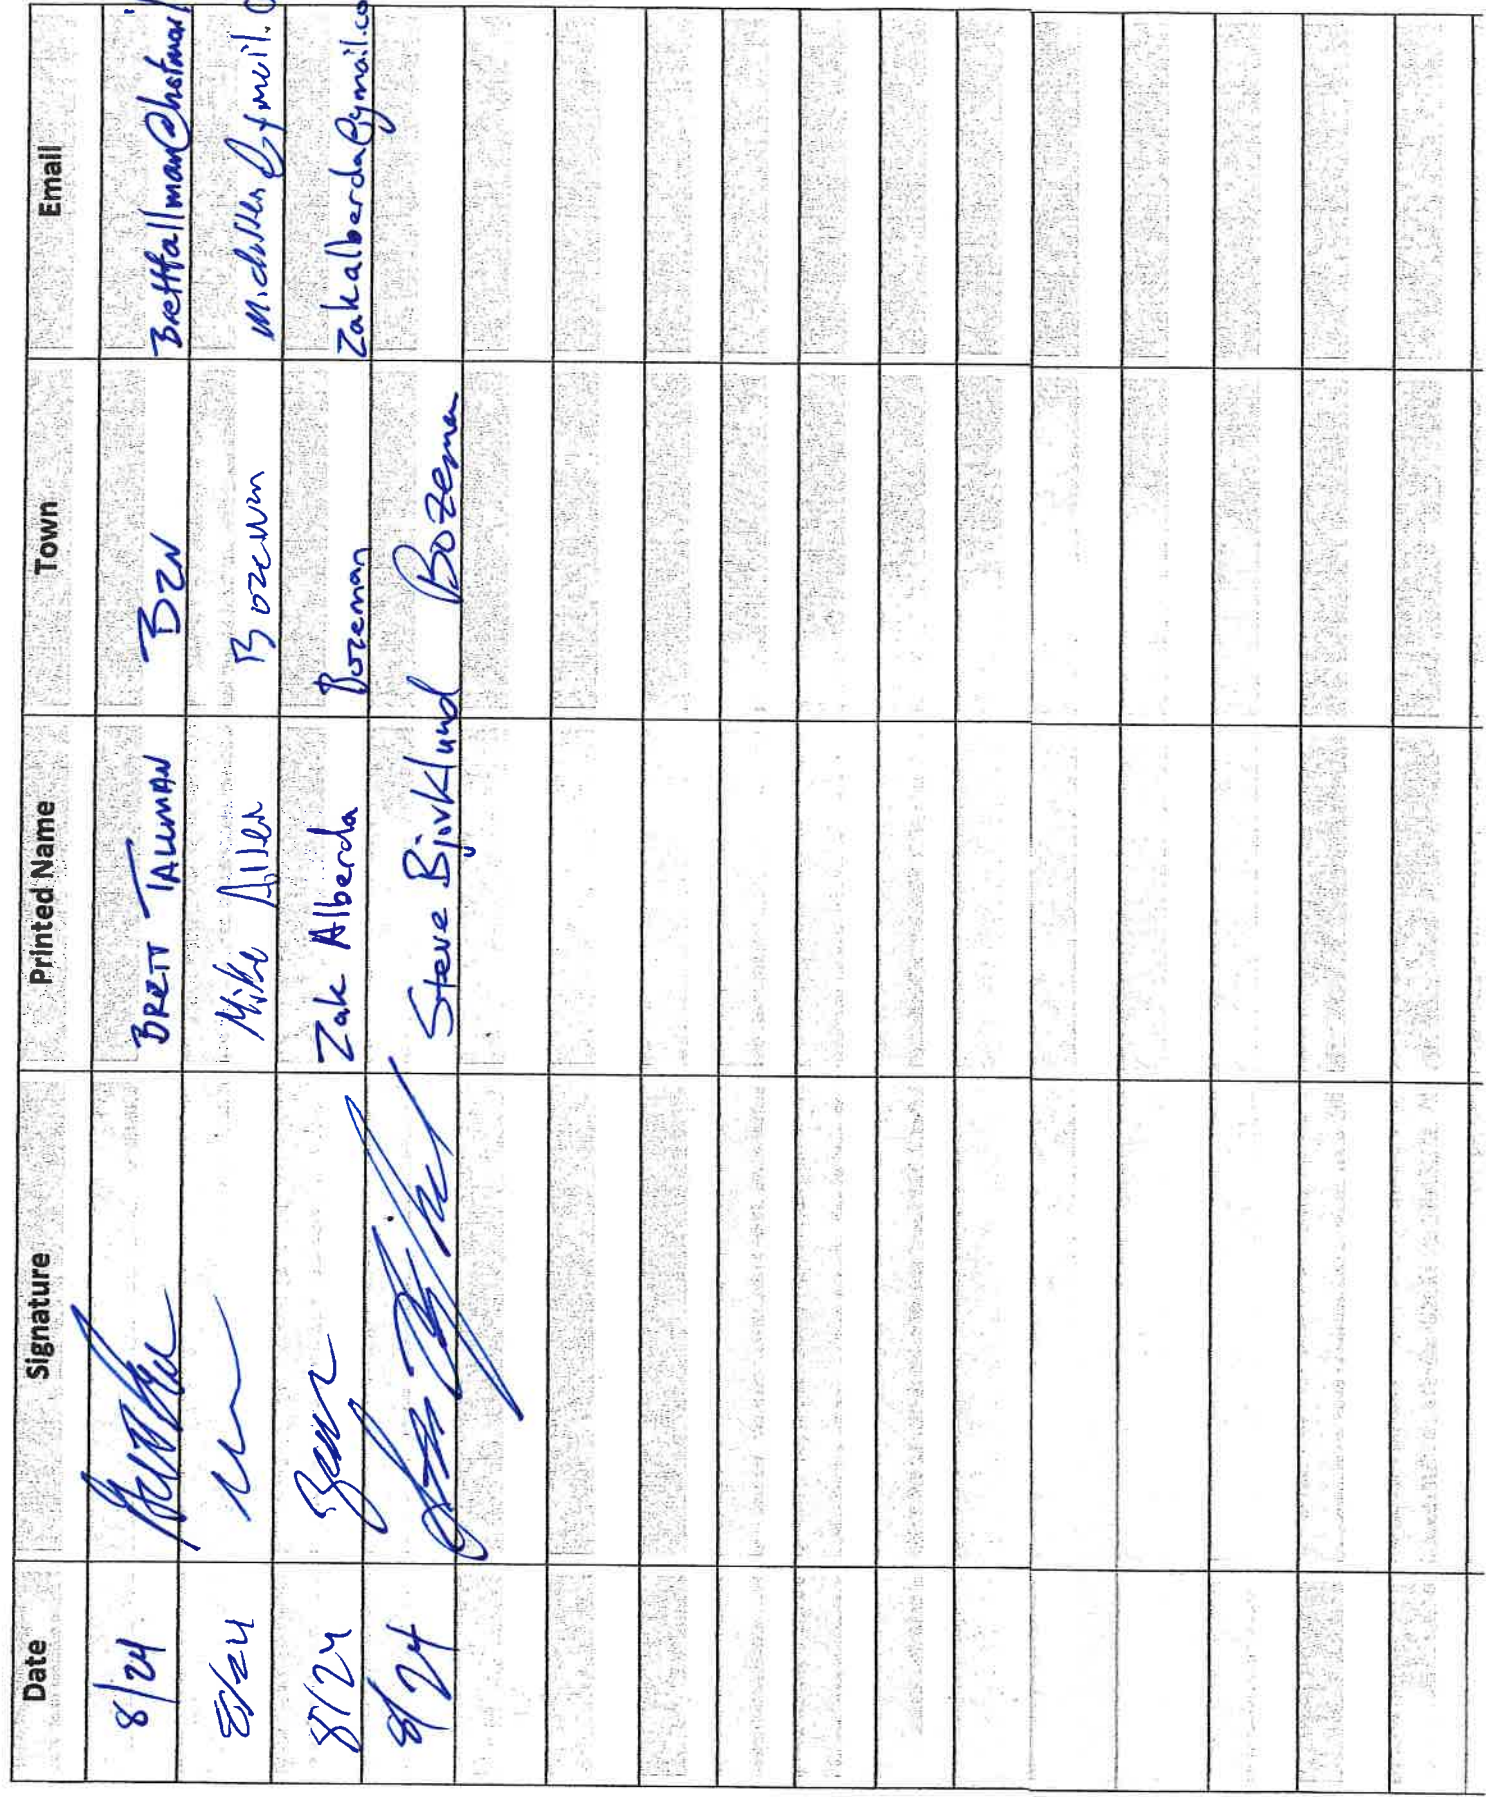 Date Signature Printed Name Town Email
8/24 BRETT TALLMAN BZN Bretttallman@hotmail
8/24 Mike Allen Bozeman
8/24 Zak Alberda Bozeman Zakalberda@gmail.co
8/24 Steve Bjorklund Bozeman